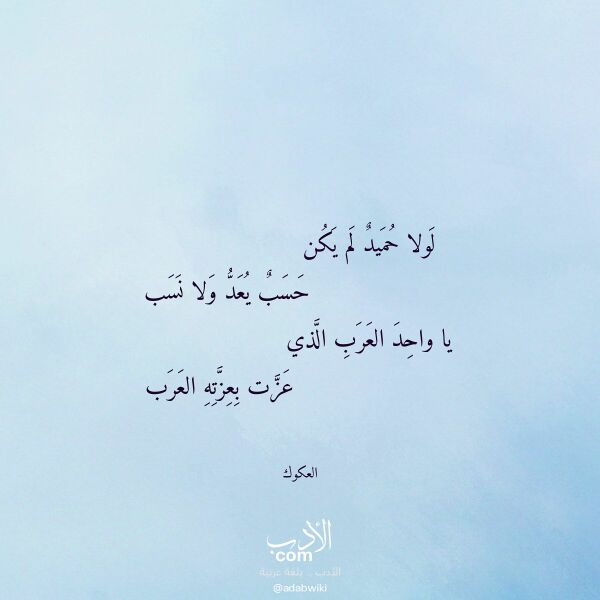 لَولا حُمَيدٌ لَم يَكُن
حَسَبٌ يُعَدُّ وَلا نَسَب
يا واحِدَ العَرَبِ الَّذي
عَزَّت بِعِزَّتِهِ العَرَب
العكوك
الأدب
com
الأدب .. بلغة عربية
@adabwiki